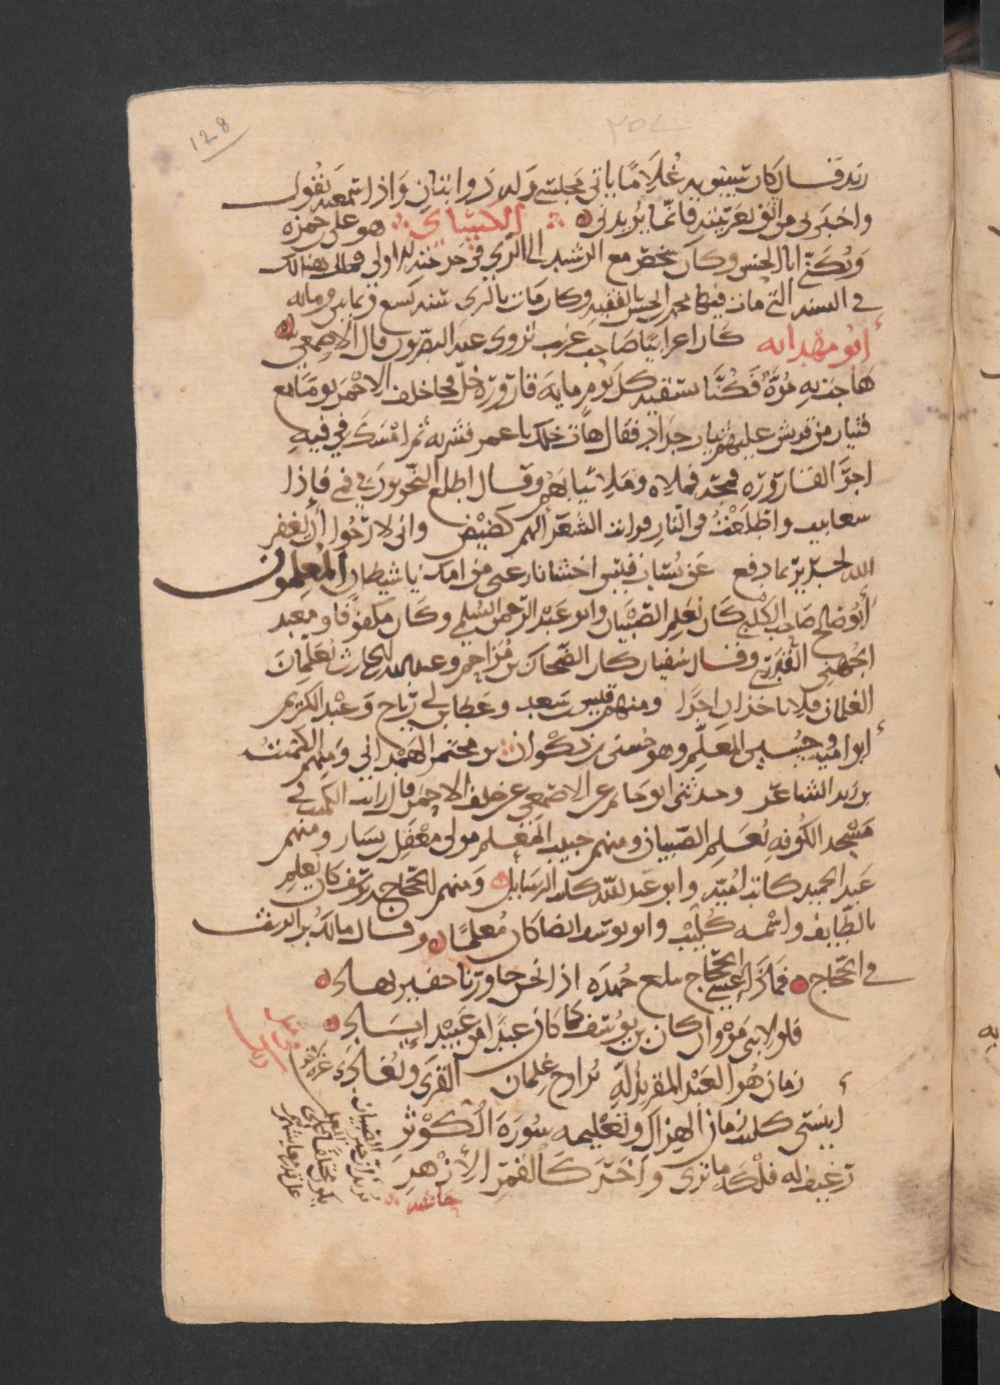 128
زيد قال كان سيبويه غلاما ياتي مجلسي وله ذوابتان واذا سمعته يقول
واخبرني من اثق بعربيته فانما يريدني الكسائي هو علي حمزه
ويكنى ابا الحسن وكان شخص مع الرشيد الى الري في خرجته الاولى فمات هنالك
في السنه التي مات فيها محمد الحسن الفقيه وكان مات بالري سنه تسع وثمانين ومايه
ابو مهديه كان اعرابيا صاحب غريب يروي عنه البصريون قال الاصمعي
هاجت به مرة فكنا نسقيه كل يوم مايه قارورة خل فجا خلف الاحمر يوما مع
فتيان من قريش عليهم ثياب جداد فقال هات خلك يا عمر فشربه ثم امسك في فيه
اجر القاروره فمجه فملاه وملا ثيابهم وقال اطلع النحويون في فاذا
سعابيب واطلعت في النار فرايت الشعرا لهم كضيض واني لارجوا ان يغفر
الله لجرير بما دفع عن نسيات قيس اخسانا رعني من امك يا شيطان المعلمون
ابو صالح صاحب الكلبي كان يعلم الصبيان وابو عبد الرحمن السلمي وكان مكفوفا ومعبد
الجهني القدري وقال سفيان كان الضحاك بن مزاحم وعبد الله الحارث يعلمان
الغلمان ولا ياخذان اجرا ومنهم قيس سعد وعطا بن ابي رباح وعبد الكريم
ابو اميه وحسين المعلم وهو حسين بن ذكوان بن محتمر الهمداني ومنهم الكميت
بن زيد الشاعر وحدثني ابو حاتم عن الاصمعي عن خلف الاحمر قال رايت الكميت في
مسجد الكوفه يعلم الصبيان ومنهم حبيب المعلم مولى معقل يسار ومنهم
عبد الحميد كاتب اميه وابو عبد الله كاتب الرسايل ومنهم الحجاج يوسف كان يعلم
بالطايف واسمه كليب وابو يوسف ايضا كان معلما وقال مالك بن الريب
في الحجاج فماذا عسى الحجاج يبلغ جهده اذا نحن جاوزنا حفير زياد
فلولا بني مروان كان بن يوسف كما كان عبدا من عبيد اياد
زمان هو العبد المقر بذله يراوح غلمان القرى ويغادي
اينسى كليب زمان الهزال وتعليمه سورة الكوثر
رغيف له فلكة ما ترى واخر كالقمر الازهر
حاشيه